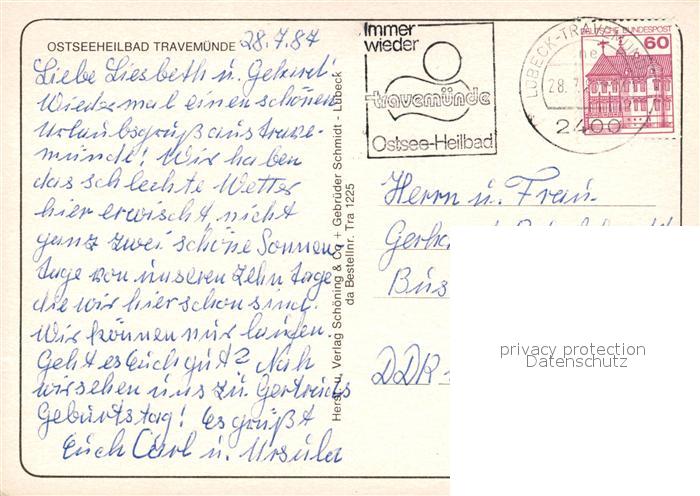 OSTSEEHEILBAD TRAVEMÜNDE 28.7.87
Liebe Liesbeth u. Gerhard!
Wiedermal einen schönen
Urlaubsgruß aus Trave-
münde! Wir haben
das schlechte Wetter
hier erwischt, nicht
ganz zwei schöne Sonnen-
tage von unseren zehn Tage
die wir hier schon sind.
Wir können nur laufen.
Geht es Euch gut? Nah
wir sehen uns zu Gertruds
Geburtstag! Es grüßt
Euch Carl u. Ursula
Herst. u. Verlag Schöning & Co + Gebrüder Schmidt - Lübeck
da Bestellnr. Tra 1225
Immer
wieder
travemünde
Ostsee-Heilbad
LÜBECK-TRAVEMÜNDE
28.7.
2400
DEUTSCHE BUNDESPOST
60
Herrn u. Frau
Gerh
Bus
DDR
privacy protection
Datenschutz